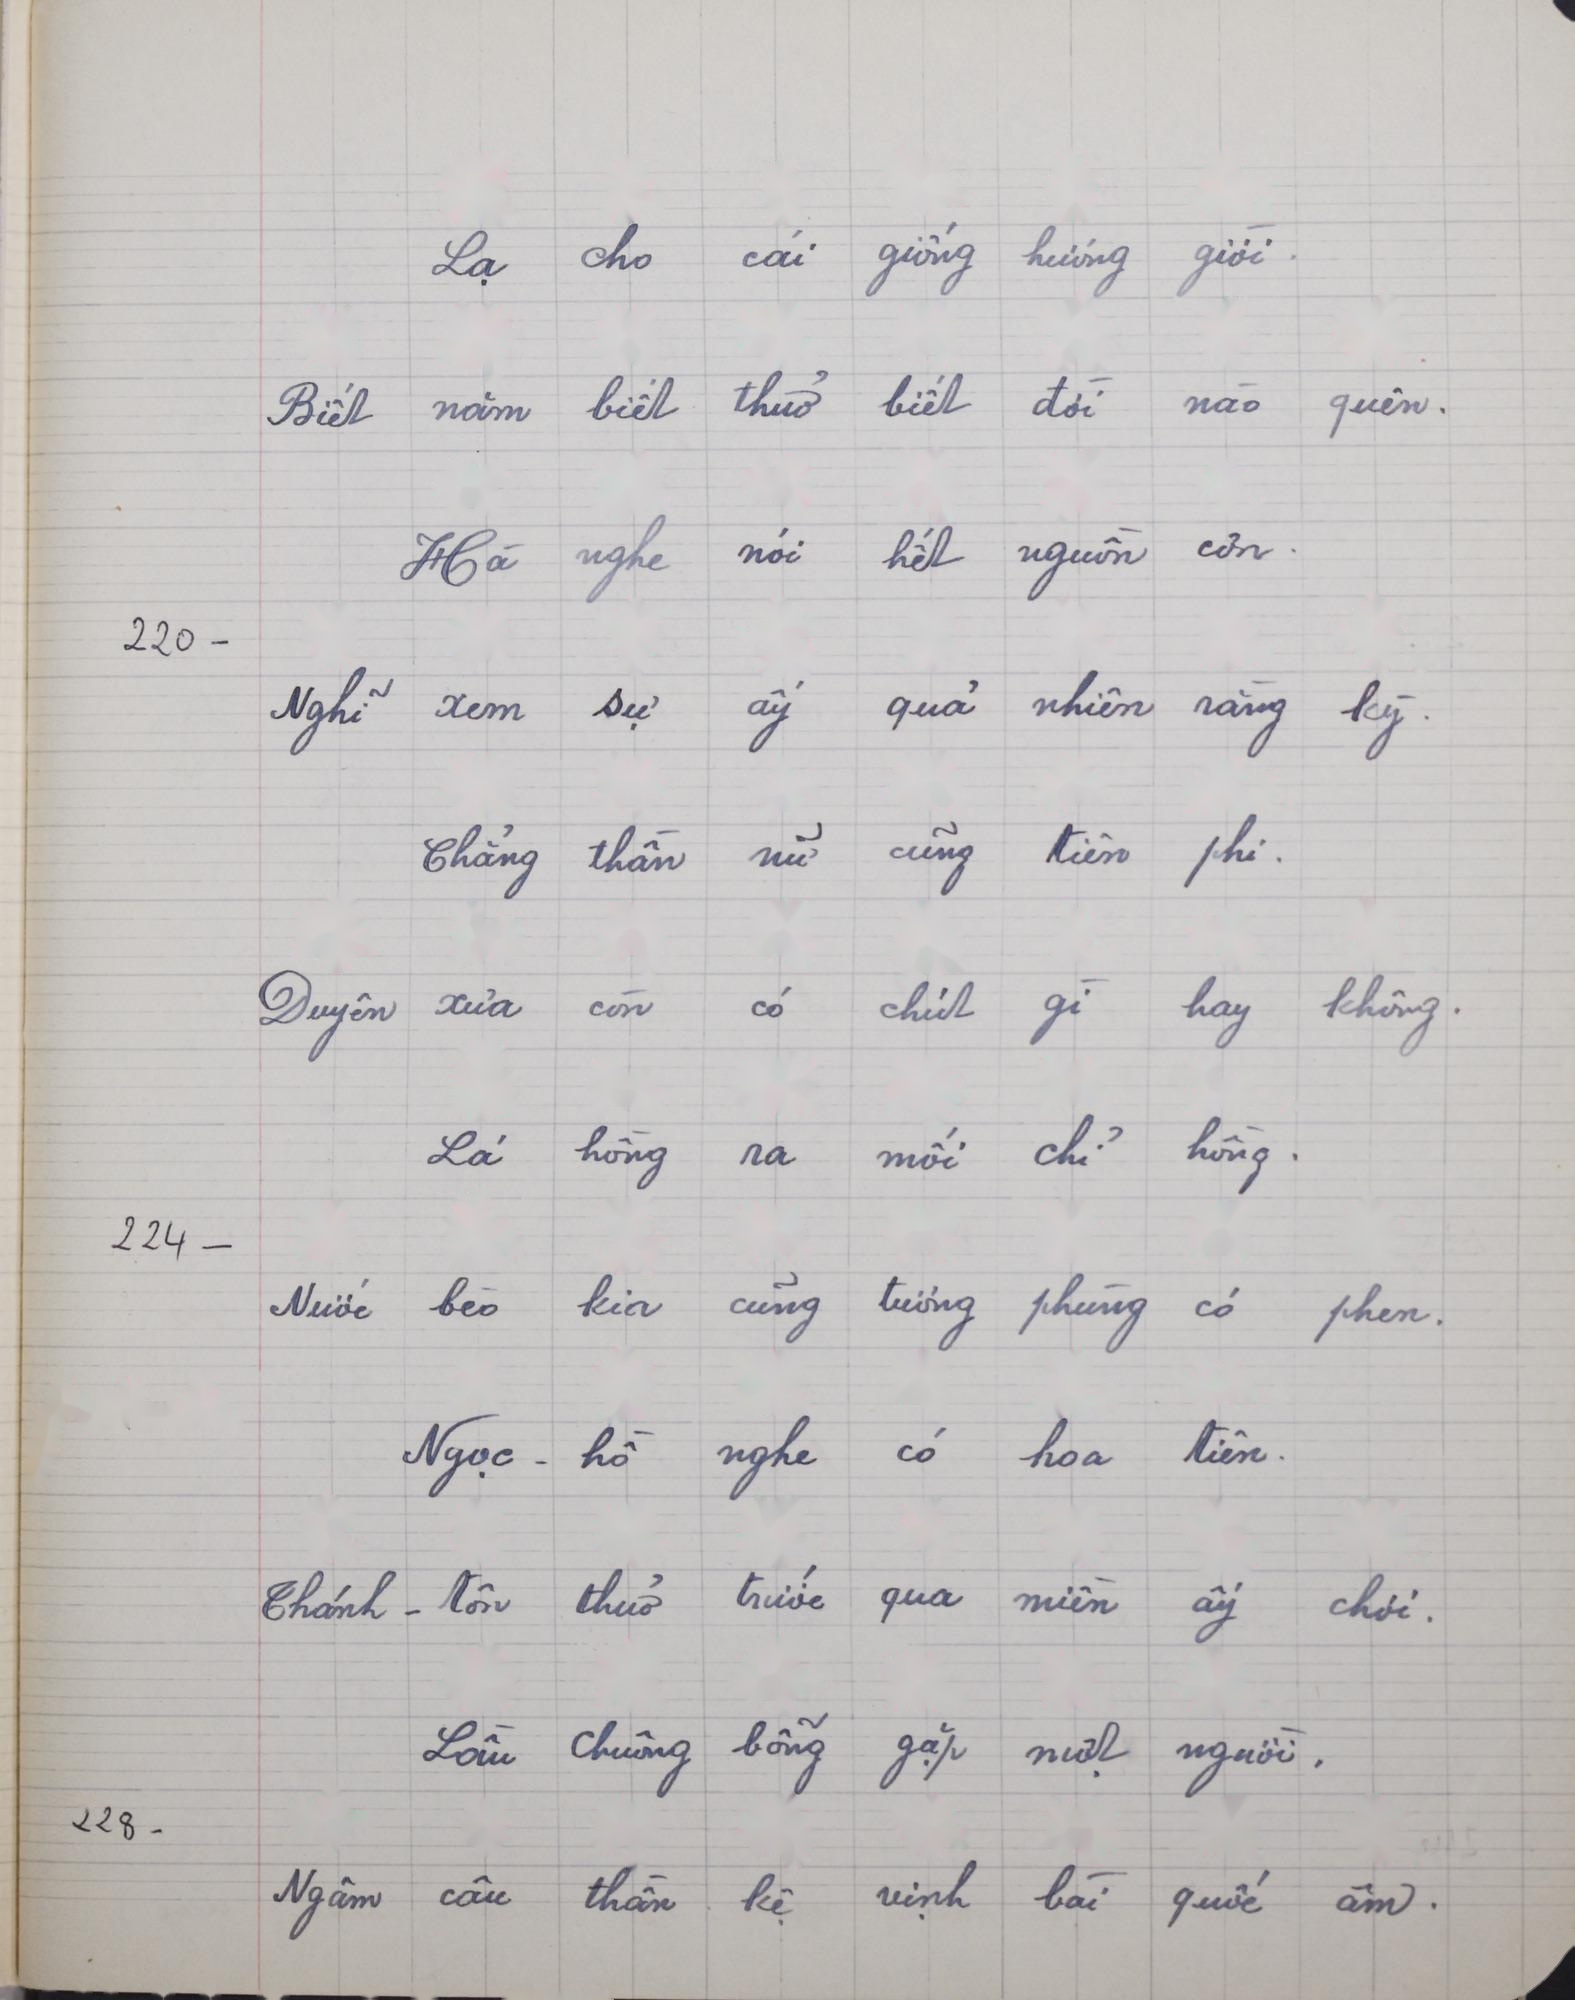 Lạ cho cái giống hương giời.
Biết năm biết thuở biết đời nào quên.
Hà nghe nói hết nguồn cơn.
220 -
Nghĩ xem sự ấy quả nhiên rằng kỳ.
Chẳng thần nữ cũng tiên phi.
Duyên xưa còn có chút gì hay không.
Lá hồng ra mối chỉ hồng.
224 -
Nước bèo kia cũng tương phùng có phen.
Ngọc - hồ nghe có hoa tiên.
Thánh - tôn thuở trước qua miền ấy chơi.
Lầu chuông bỗng gặp một người.
228 -
Ngâm câu thần kệ vịnh bài quốc âm.